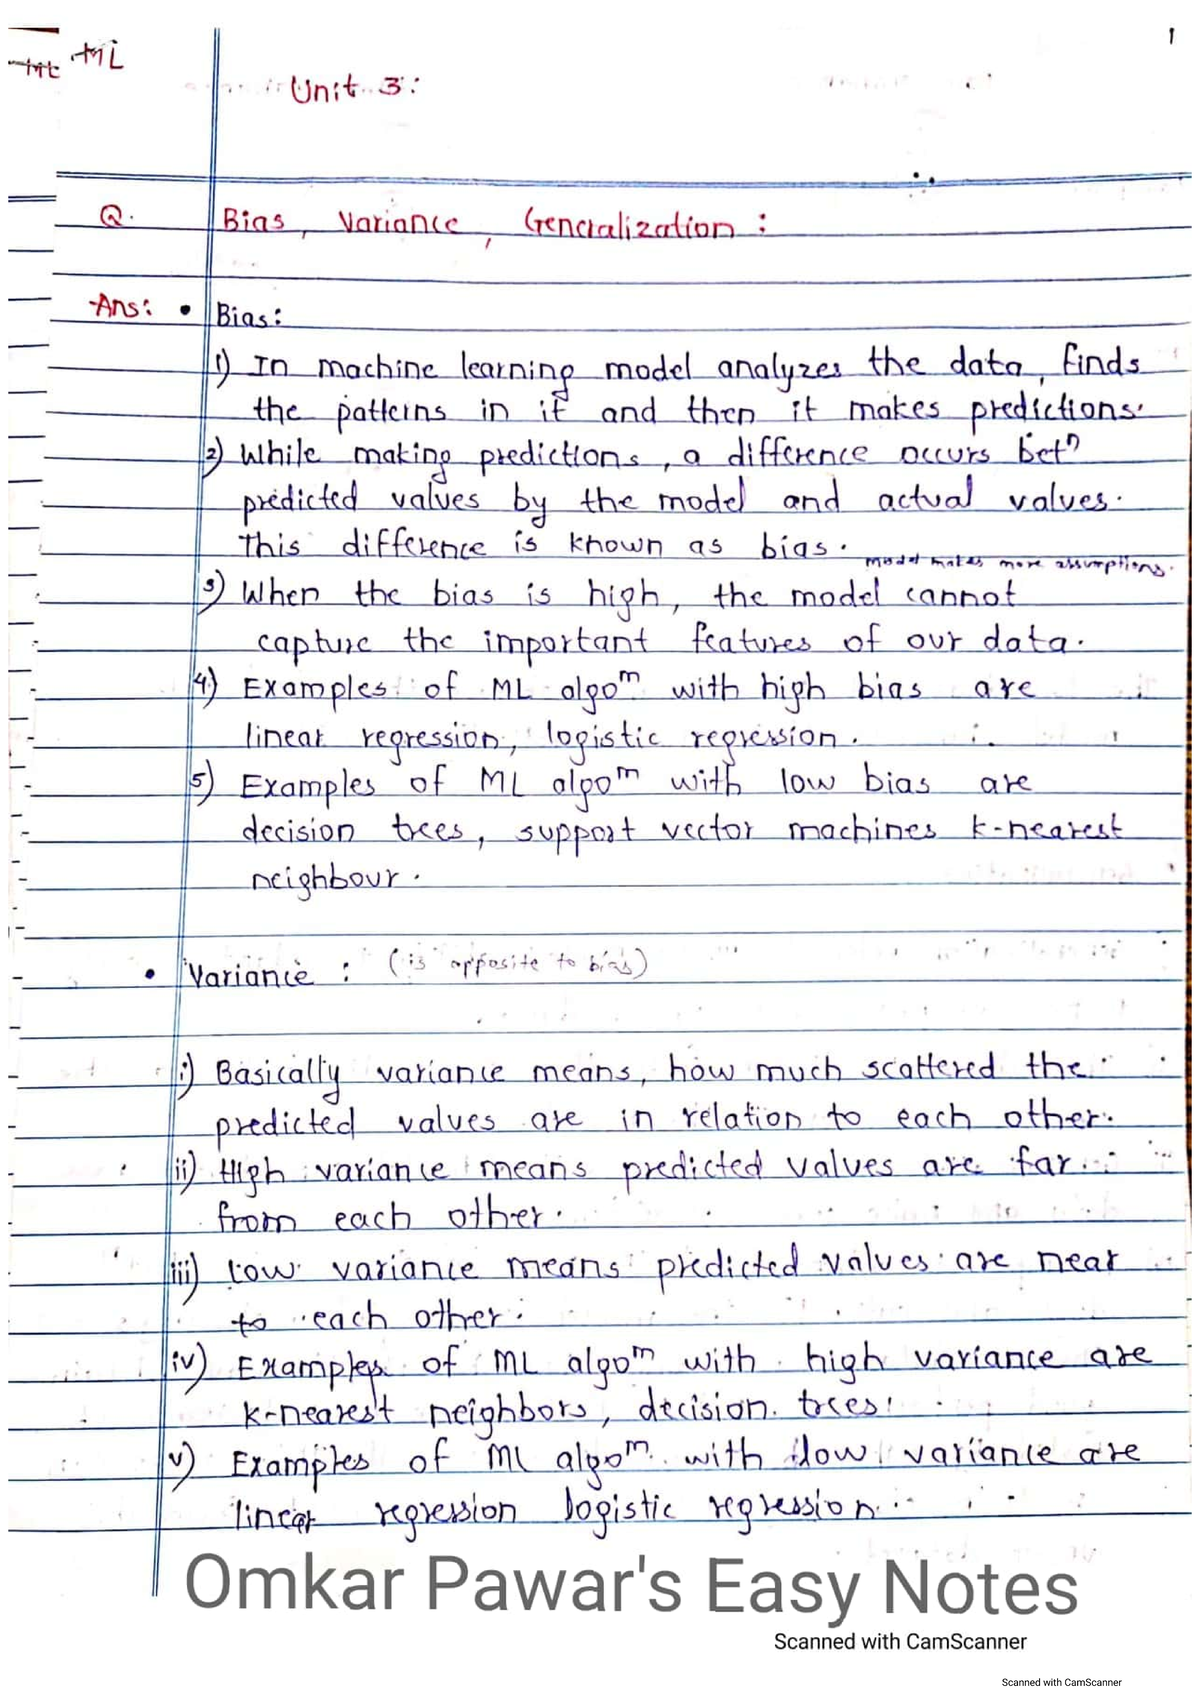 ML ML
1
Unit 3:
Q. Bias, Variance, Generalization:
Ans: • Bias:
1) In machine learning model analyzes the data, finds
the patterns in it and then it makes predictions.
2) While making predictions, a difference occurs betn
predicted values by the model and actual values.
This difference is known as bias.
model makes more assumptions.
3) When the bias is high, the model cannot
capture the important features of our data.
4) Examples of ML algom with high bias are
linear regression, logistic regression.
5) Examples of ML algom with low bias are
decision trees, support vector machines k-nearest
neighbour.
• Variance : (is opposite to bias)
i) Basically variance means, how much scattered the
predicted values are in relation to each other.
ii) High variance means predicted values are far
from each other.
iii) Low variance means predicted values are near
to each other.
iv) Examples of ML algom with high variance are
k-nearest neighbors, decision trees.
v) Examples of ML algom with low variance are
linear regression logistic regression.
Omkar Pawar's Easy Notes
Scanned with CamScanner
Scanned with CamScanner